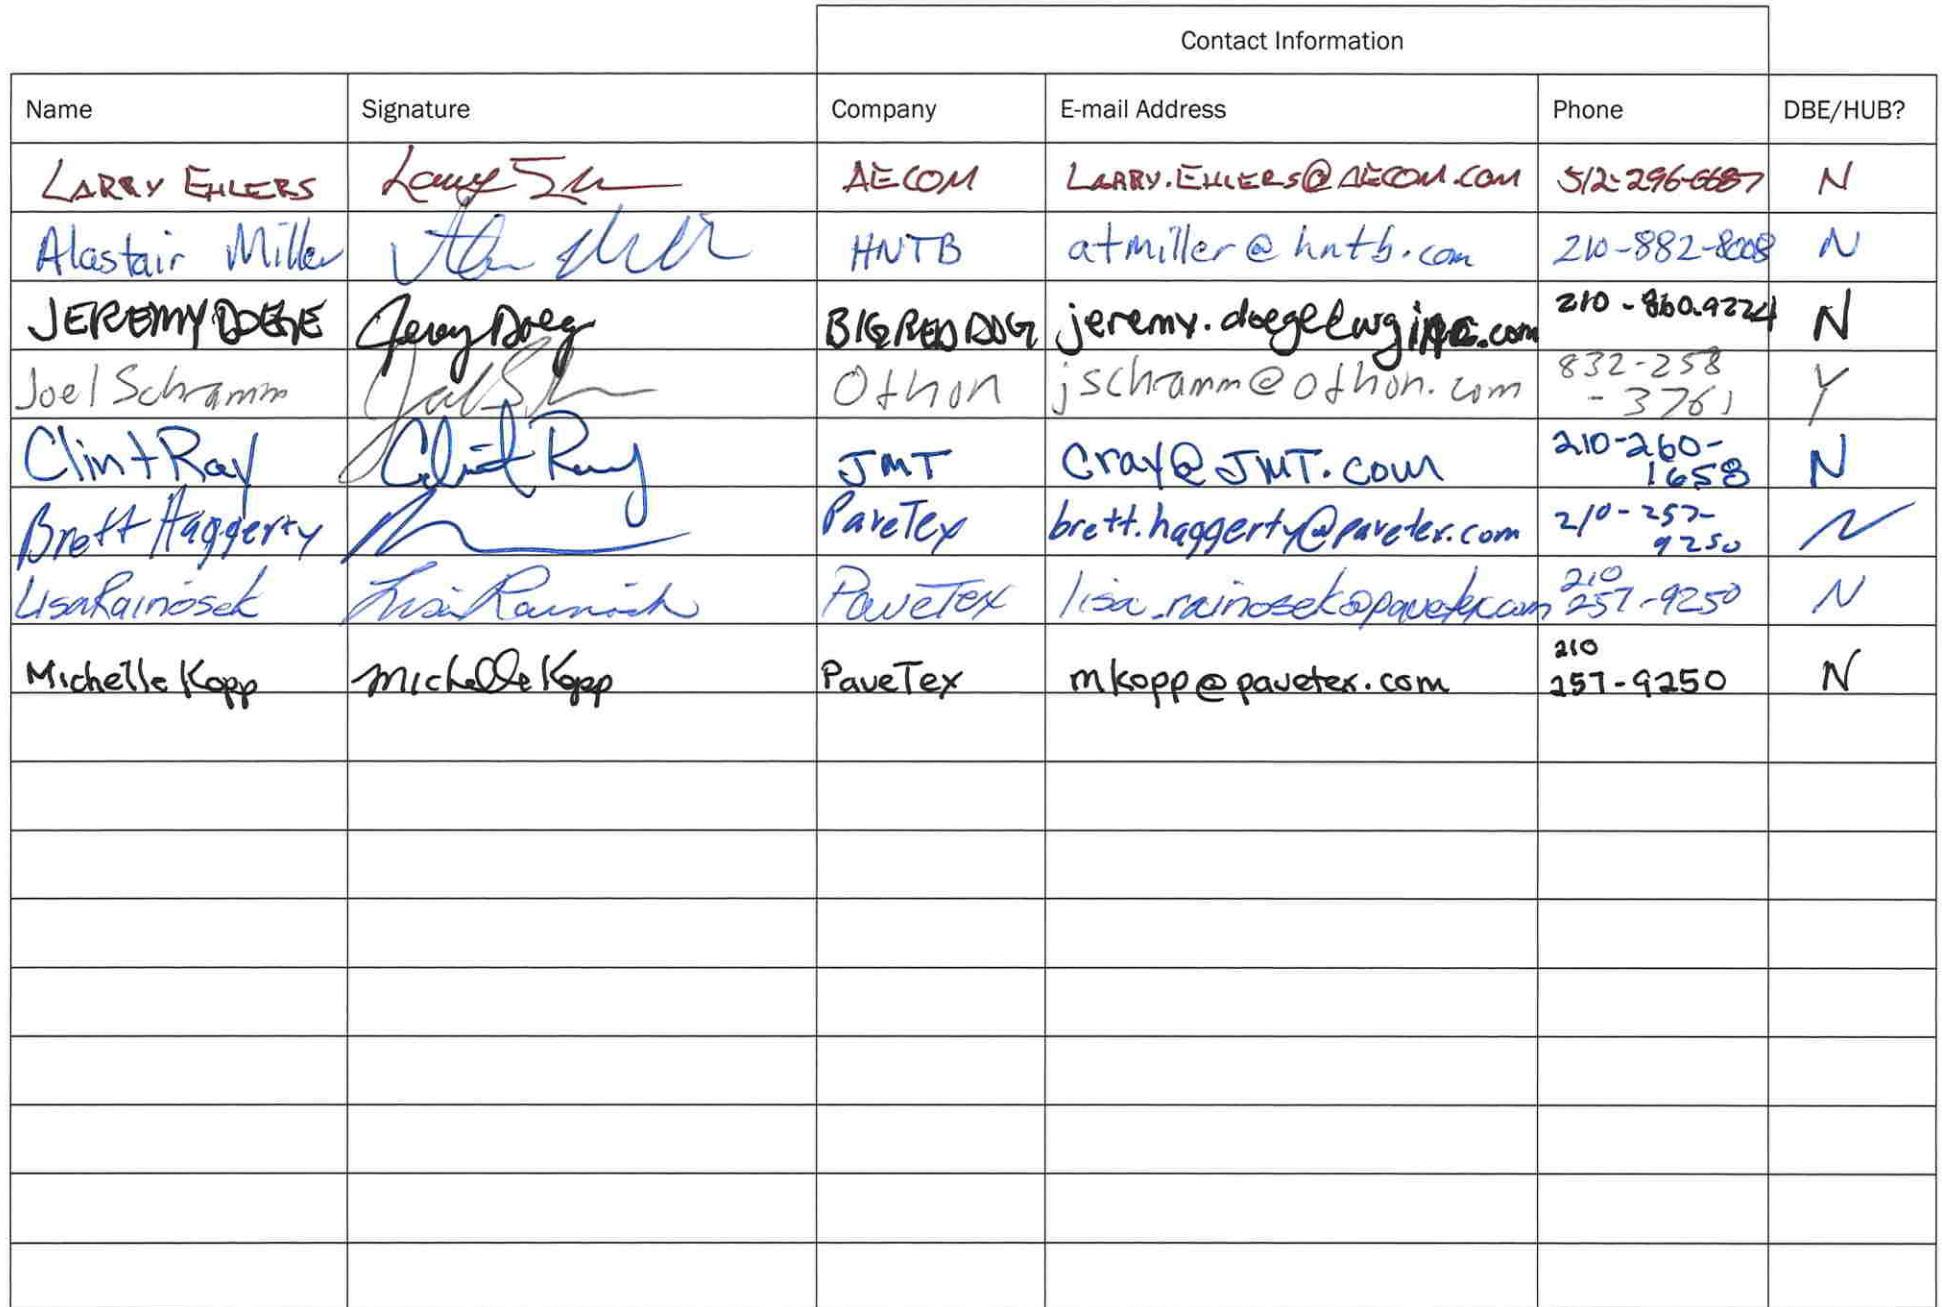 Contact Information
Name Signature Company E-mail Address Phone DBE/HUB?
LARRY EHLERS Larry AECOM LARRY.EHLERS@AECOM.COM 512-296-6687 N
Alastair Miller HNTB atmiller@hntb.com 210-882-8008 N
JEREMY DOEGE Jeremy Doege BIG RED DOG 210-860.9224 N
Joel Schramm Othon jschramm@othon.com 832-258
-3761 Y
Clint Ray Clint Ray JMT cray@JMT.com 210-260-
1658 N
Brett Haggerty PaveTex brett.haggerty@pavetex.com 210-257-
9250 N
Lisa Rainosek Lisa Rainosek PaveTex lisa.rainosek@pavetex.com 210
257-9250 N
Michelle Kopp Michelle Kopp PaveTex mkopp@pavetex.com 210
257-9250 N